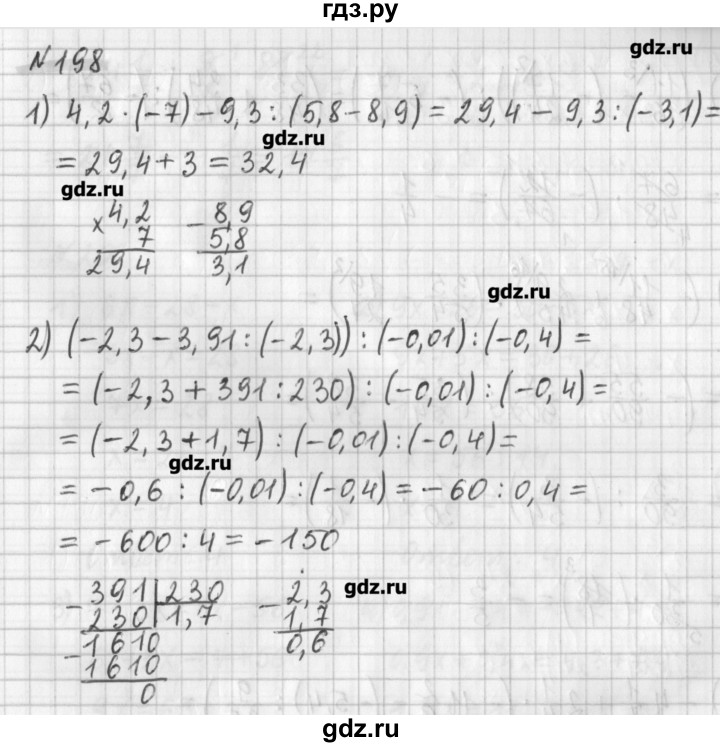 гдз.ру
gdz.ru
N 198
1) 4,2 · (-7) - 9,3 : (5,8 - 8,9) = 29,4 - 9,3 : (-3,1) =
gdz.ru
= 29,4 + 3 = 32,4
gdz.ru
× 4,2
7
29,4
- 8,9
5,8
3,1
gdz.ru
2) (-2,3 - 3,91 : (-2,3)) : (-0,01) : (-0,4) =
= (-2,3 + 391 : 230) : (-0,01) : (-0,4) =
= (-2,3 + 1,7) : (-0,01) : (-0,4) =
gdz.ru
= -0,6 : (-0,01) : (-0,4) = -60 : 0,4 =
= -600 : 4 = -150
- 391 | 230
230 | 1,7
1610
- 1610
0
- 2,3
1,7
0,6
gdz.ru
gdz.ru